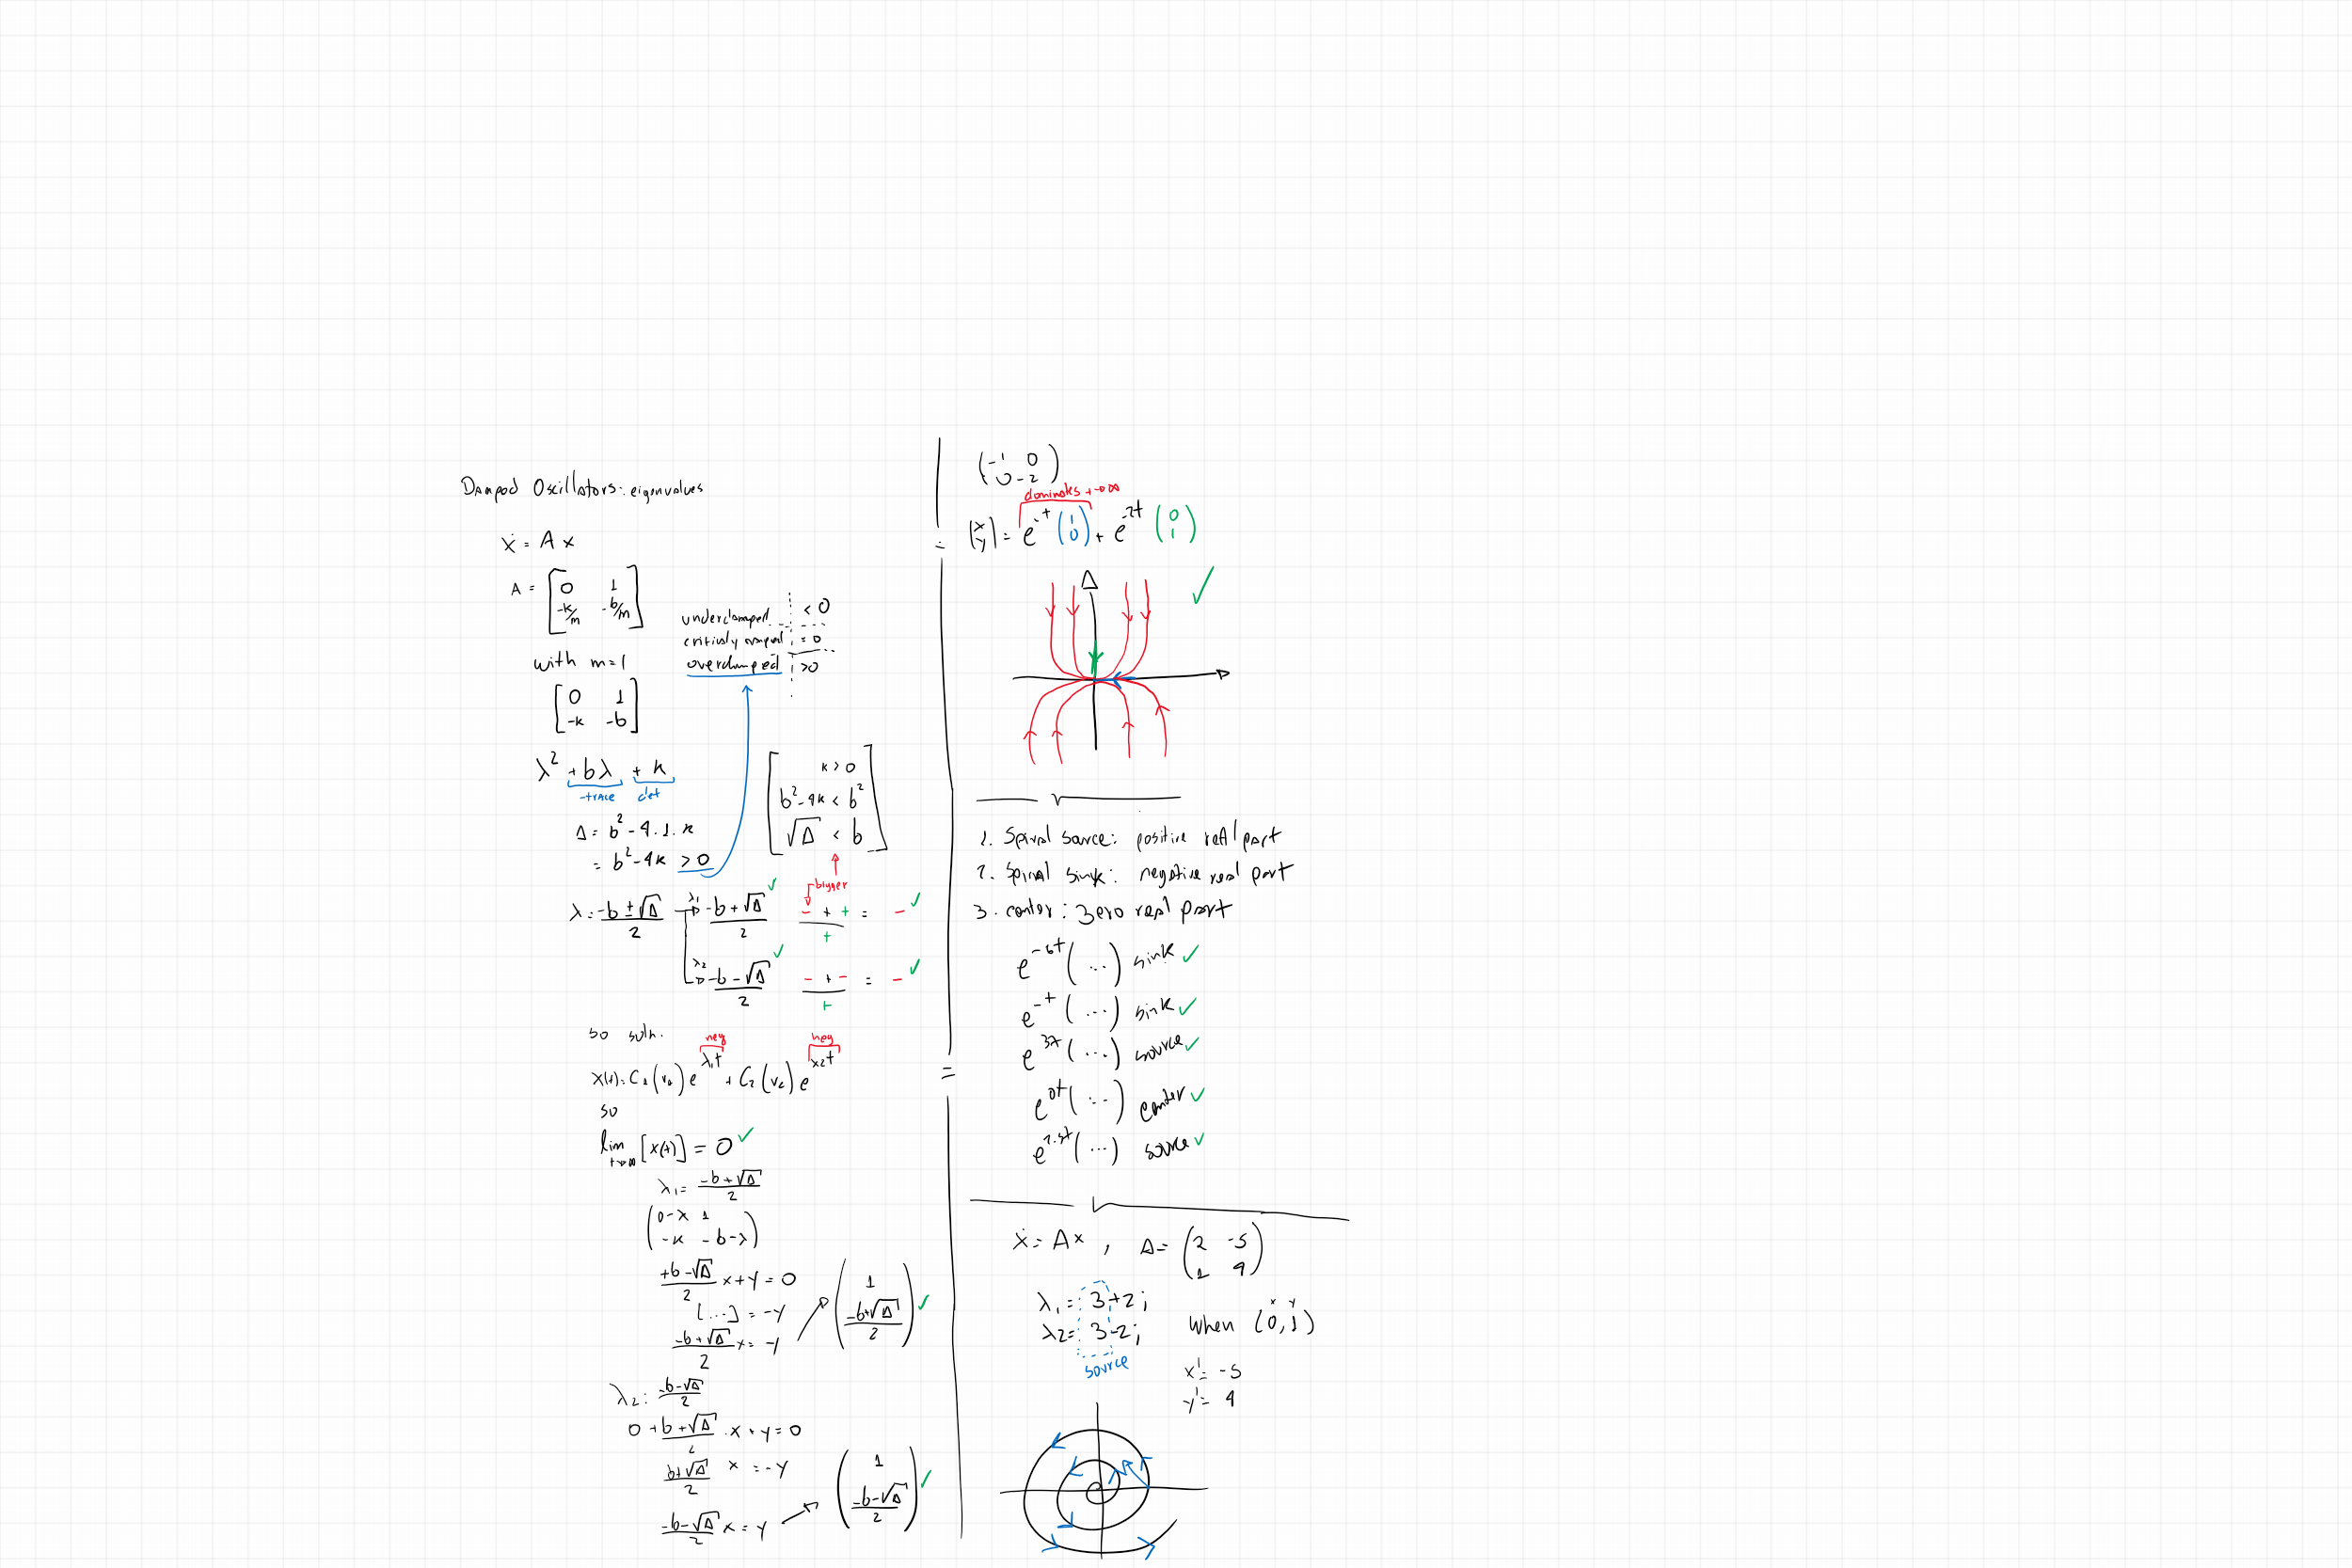 Damped Oscillators: eigenvalues
ẋ = A x
A = [0 1
-k/m -b/m]
with m=1
[0 1
-k -b]
underdamped < 0
critically damped = 0
overdamped >0
λ² +bλ + k
-trace det
Δ = b² - 4.1.k
= b²-4k > 0
[k > 0
b²-4k < b²
√Δ < b]
bigger
λ = (-b ± √Δ)/2
λ₁ (-b + √Δ)/2 ✓ (- + +)/+ = - ✓
λ₂ (-b - √Δ)/2 ✓ (- + -)/+ = - ✓
so soln.
neg neg
x(t) = C₁(v₁) e^λ₁t + C₂(v₂) e^λ₂t
so
lim t→∞ [x(t)] = 0 ✓
λ₁ = (-b+√Δ)/2
(0-λ 1
-k -b-λ)
(+b-√Δ)/2 x+y = 0
[...] = -y
(-b+√Δ)/2 x = -y
(1
(-b+√Δ)/2) ✓
λ₂: (-b-√Δ)/2
0 + (b+√Δ)/2 . x + y = 0
(b+√Δ)/2 x = -y
(-b-√Δ)/2 x = y
(1
(-b-√Δ)/2) ✓
(-1 0
0 -2)
dominates t→∞
(x
y) = e^-t (1
0) + e^-2t (0
1)
✓
1. Spiral source: positive real part
2. Spiral sink: negative real part
3. center: zero real part
e^-6t (...) sink ✓
e^-t (...) sink ✓
e^3t (...) source ✓
e^0t (...) center ✓
(...) source ✓
ẋ = Ax , A = (2 -5
1 4)
λ₁ = 3+2i
λ2 = 3-2i
source
x y
when (0,1)
x' = -5
y' = 4